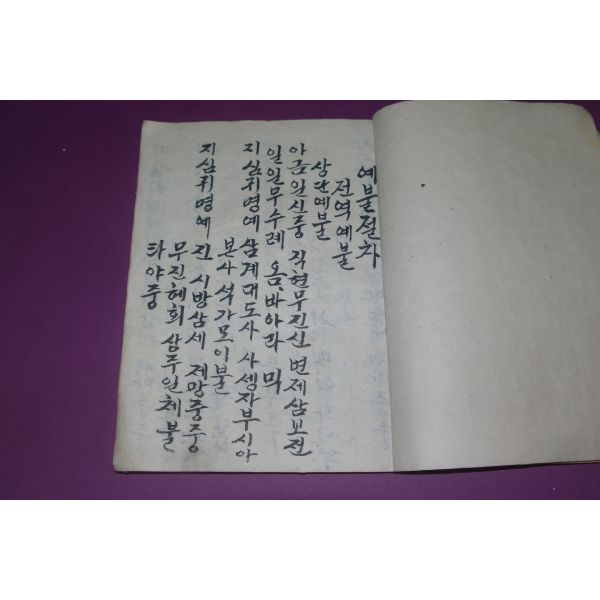 예불절차
전역예불
상단예불
아금일신중 직현무진신 변제삼보전
일일무수례 옴, 바아라 믹
지심귀명예 삼계대도사 사셍자부시아
본사 석가모이불
지심귀명예 진 시방삼세 제망중중
무진혜회 삼주일체불
타야중